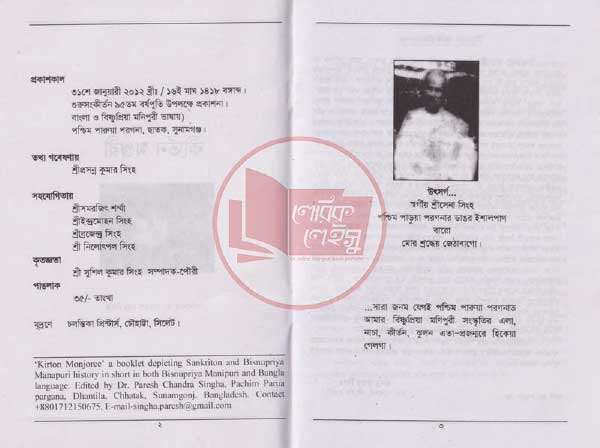 প্রকাশকাল
৩১শে জানুয়ারী ২০১২ খ্রীঃ / ১৬ই মাঘ ১৪১৮ বঙ্গাব্দ।
গুরুসংকীর্তন ৯৫তম বর্ষপুতি উপলক্ষে প্রকাশনা।
বাংলা ও বিষ্ণুপ্রিয়া মনিপুরী ভাষায়)
পশ্চিম পারুয়া পরগনা, ছাতক, সুনামগঞ্জ।
তথ্য গবেষণায়
শ্রীপ্রসন্ন কুমার সিংহ
সহযোগিতায়
শ্রীসমরজিৎ শর্ম্মা
শ্রীইন্দ্রমোহন সিংহ
শ্রীব্রজেন্দ্র সিংহ
শ্রী নিলোৎপল সিংহ
কৃতজ্ঞতা
শ্রী সুশিল কুমার সিংহ সম্পাদক-পৌরী
পাঙলাক
৩৫/- তাংখা
মুদ্রণে চলন্তিকা প্রিন্টার্স, চৌহাট্টা, সিলেট।
'Kirton Monjoree' a booklet depicting Sankriton and Bisnupriya
Manapuri history in short in both Bisnupriya Manipuri and Bangla
language. Edited by Dr. Paresh Chandra Singha, Pachim Parua
pargana, Dhantila, Chhatak, Sunamgonj, Bangladesh. Contact
+8801712150675, E-mail-singha.paresh@gmail.com
২
উৎসর্গ...
স্বর্গীয় শ্রীসেনা সিংহ
পশ্চিম পাড়ুয়া পরগনার ডাঙর ইশালপাগ
বারো
মোর শ্রদ্ধেয় জেঠাবাগো।
...সারা জনম যেগই পশ্চিম পারুয়া পরগনাত
আমার বিষ্ণুপ্রিয়া মনিপুরী সংস্কৃতির এলা,
নাচা, কীর্তন, ঝুলন এতা-প্রজন্মরে হিকেয়া
গেলগা।
৩
পৌরিক
লেইসু